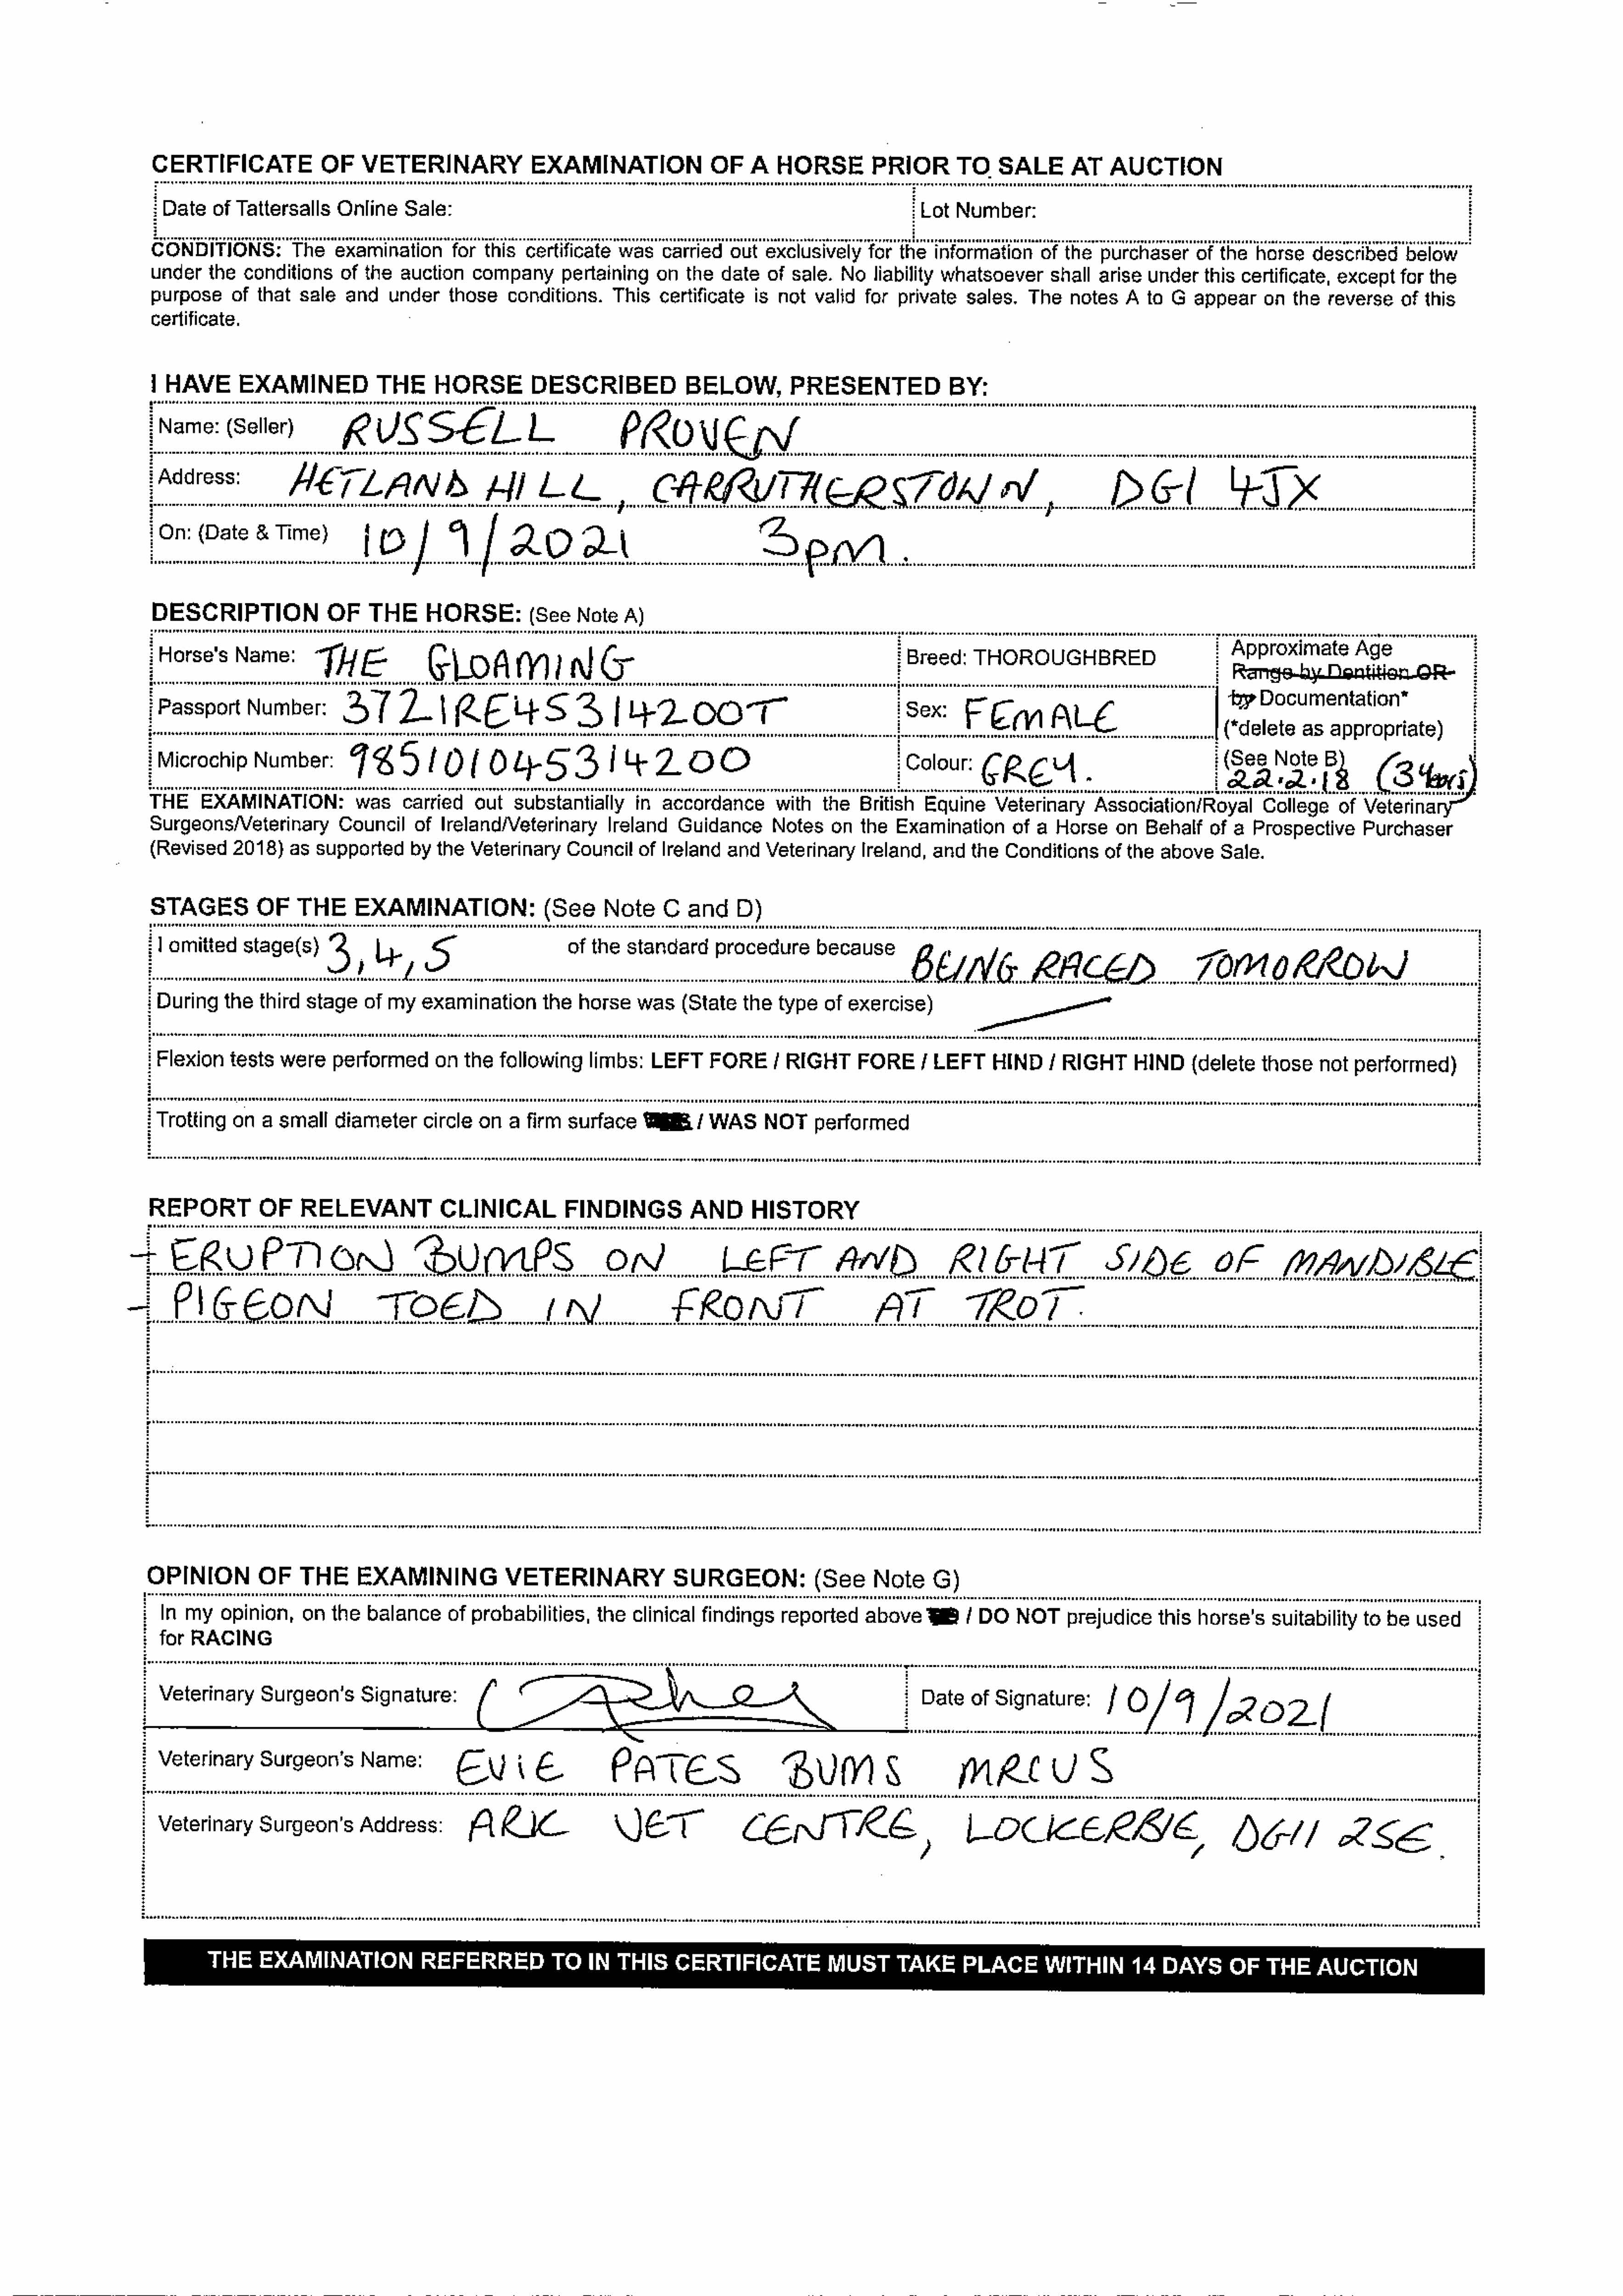 CERTIFICATE OF VETERINARY EXAMINATION OF A HORSE PRIOR TO SALE AT AUCTION
Date of Tattersalls Online Sale: Lot Number:
CONDITIONS: The examination for this certificate was carried out exclusively for the information of the purchaser of the horse described below
under the conditions of the auction company pertaining on the date of sale. No liability whatsoever shall arise under this certificate, except for the
purpose of that sale and under those conditions. This certificate is not valid for private sales. The notes A to G appear on the reverse of this
certificate.
I HAVE EXAMINED THE HORSE DESCRIBED BELOW, PRESENTED BY:
Name: (Seller) RUSSELL PROVEN
Address: HETLAND HILL, CARRUTHERSTOWN, DG1 4JX
On: (Date & Time) 10/9/2021 3pm.
DESCRIPTION OF THE HORSE: (See Note A)
Horse's Name: THE GLOAMING Breed: THOROUGHBRED Approximate Age
Range by Dentition OR
Passport Number: 372IRE45314200T Sex: FEMALE by Documentation*
(*delete as appropriate)
Microchip Number: 985101045314200 Colour: GREY. (See Note B)
22.2.18 (3 years)
THE EXAMINATION: was carried out substantially in accordance with the British Equine Veterinary Association/Royal College of Veterinary
Surgeons/Veterinary Council of Ireland/Veterinary Ireland Guidance Notes on the Examination of a Horse on Behalf of a Prospective Purchaser
(Revised 2018) as supported by the Veterinary Council of Ireland and Veterinary Ireland, and the Conditions of the above Sale.
STAGES OF THE EXAMINATION: (See Note C and D)
I omitted stage(s) 3, 4, 5 of the standard procedure because BEING RACED TOMORROW
During the third stage of my examination the horse was (State the type of exercise)
Flexion tests were performed on the following limbs: LEFT FORE / RIGHT FORE / LEFT HIND / RIGHT HIND (delete those not performed)
Trotting on a small diameter circle on a firm surface / WAS NOT performed
REPORT OF RELEVANT CLINICAL FINDINGS AND HISTORY
- ERUPTION BUMPS ON LEFT AND RIGHT SIDE OF MANDIBLE
- PIGEON TOED IN FRONT AT TROT.
OPINION OF THE EXAMINING VETERINARY SURGEON: (See Note G)
In my opinion, on the balance of probabilities, the clinical findings reported above / DO NOT prejudice this horse's suitability to be used
for RACING
Veterinary Surgeon's Signature: Date of Signature: 10/9/2021
Veterinary Surgeon's Name: EVIE PATES BVMS MRCVS
Veterinary Surgeon's Address: ARK VET CENTRE, LOCKERBIE, DG11 2SE.
THE EXAMINATION REFERRED TO IN THIS CERTIFICATE MUST TAKE PLACE WITHIN 14 DAYS OF THE AUCTION